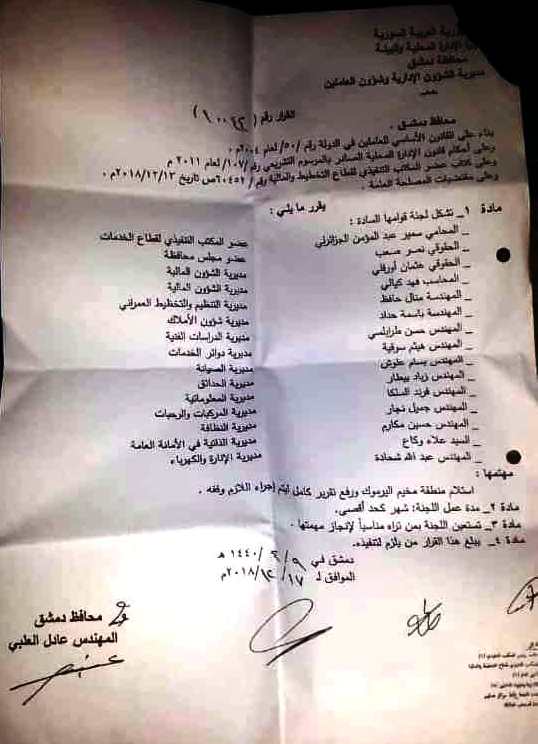 الجمهورية العربية السورية
وزارة الإدارة المحلية والبيئة
محافظة دمشق
مديرية الشؤون الإدارية وشؤون العاملين
القرار رقم (
محافظ دمشق .
بناء على القانون الأساسي للعاملين في الدولة رقم /٥٠/ لعام ٢٠٠٤م .
وعلى أحكام قانون الإدارة المحلية الصادر بالمرسوم التشريعي رقم /١٠٧/ لعام ٢٠١١ م
وعلى كتاب عضو المكتب التنفيذي لقطاع التخطيط والمالية رقم/ ٦٠٤٥٢ص تاريخ ٢٠١٨/١٢/١٣م .
وعلى مقتضيات المصلحة العامة .
يقرر ما يلي :
مادة ١_ تشكل لجنة قوامها السادة :
_ المحامي سمير عبد المؤمن الجزائرلي عضو المكتب التنفيذي لقطاع الخدمات
_ الحقوقي نصر صعب عضو مجلس محافظة
_ الحقوقي عثمان أورفلي مديرية الشؤون المالية
_ المحاسب فهد كيالي مديرية الشؤون المالية
_ المهندسة منال حافظ مديرية التنظيم والتخطيط العمراني
_ المهندسة باسمة حداد مديرية شؤون الأملاك
_ المهندس حسن طرابلسي مديرية الدراسات الفنية
_ المهندس هيثم سوقية مديرية دوائر الخدمات
_ المهندس بسام علوش مديرية الصيانة
_ المهندس زياد بيطار مديرية الحدائق
_ المهندس فرند السلكا مديرية المعلوماتية
_ المهندس جميل نجار مديرية المركبات والرحبات
_ المهندس حسين مكارم مديرية النظافة
_ السيد علاء وكاع مديرية الذاتية في الأمانة العامة
_ المهندس عبد الله شحادة مديرية الإنارة والكهرباء
مهمتها :
استلام منطقة مخيم اليرموك ورفع تقرير كامل ليتم إجراء اللازم وفقه .
مادة ٢_ مدة عمل اللجنة: شهر كحد أقصى.
مادة ٣_ تستعين اللجنة بمن تراه مناسباً لإنجاز مهمتها .
مادة ٤_ يبلغ هذا القرار من يلزم لتنفيذه.
دمشق في ٩ / / ١٤٤٠ هـ
الموافق لـ ١٧ / ١٢ / ٢٠١٨م
محافظ دمشق
المهندس عادل العلبي